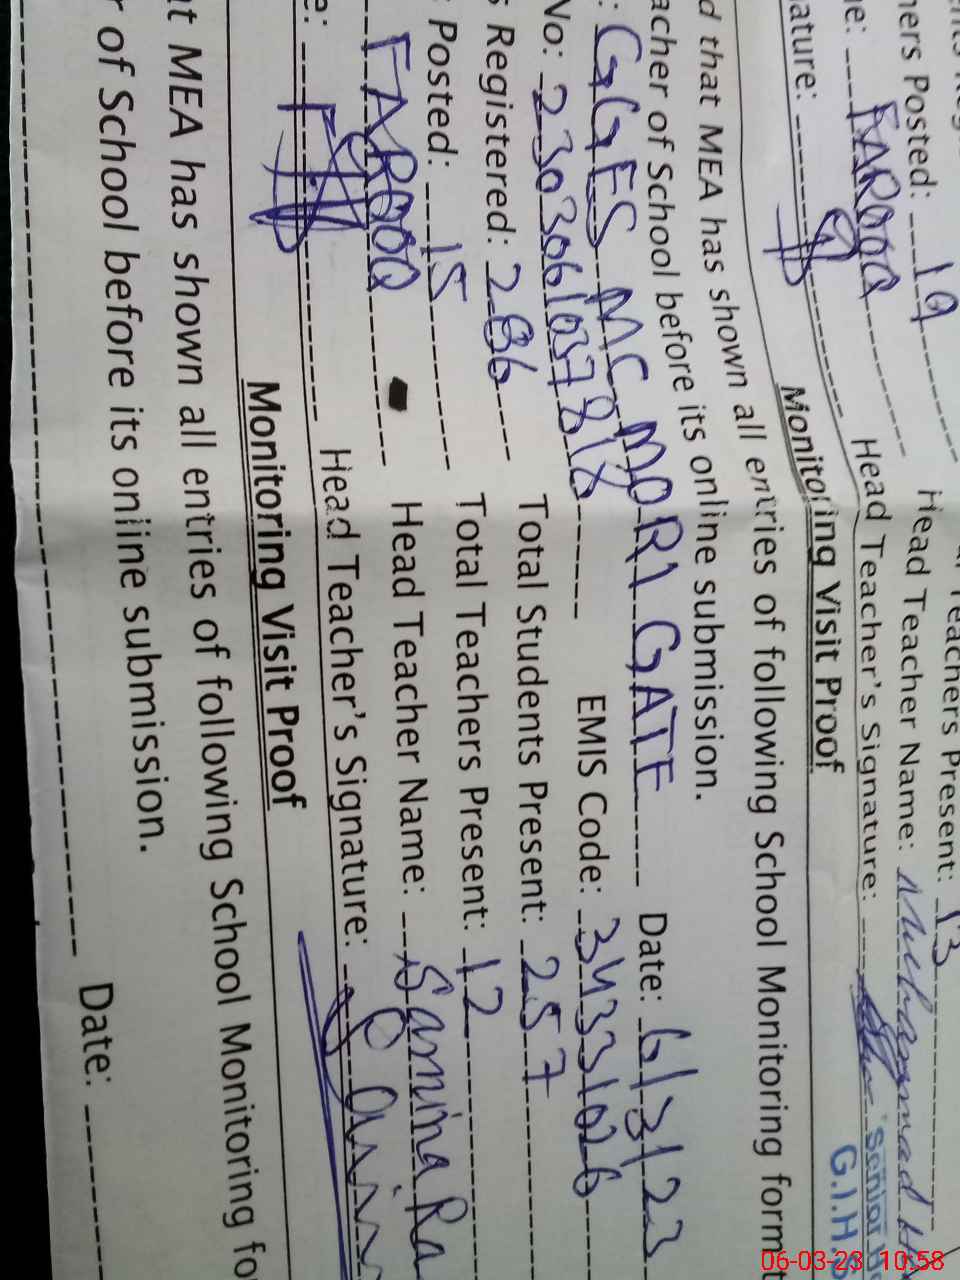 hers Posted: 19 Head Teacher Name: Muhammad
ne: FAROOQ Head Teacher's Signature:
ature: Senior
G.I.H.S
Monitoring Visit Proof
d that MEA has shown all entries of following School Monitoring format
acher of School before its online submission.
: GGES MC MORI GATE Date: 6/3/23
No: EMIS Code: 34331026
s Registered: 286 Total Students Present: 257
Posted: 15 Total Teachers Present: 12
FAROOQ Head Teacher Name: Samina Ra
e: Head Teacher's Signature:
Monitoring Visit Proof
at MEA has shown all entries of following School Monitoring fo
r of School before its online submission.
Date:
06-03-23 10:58